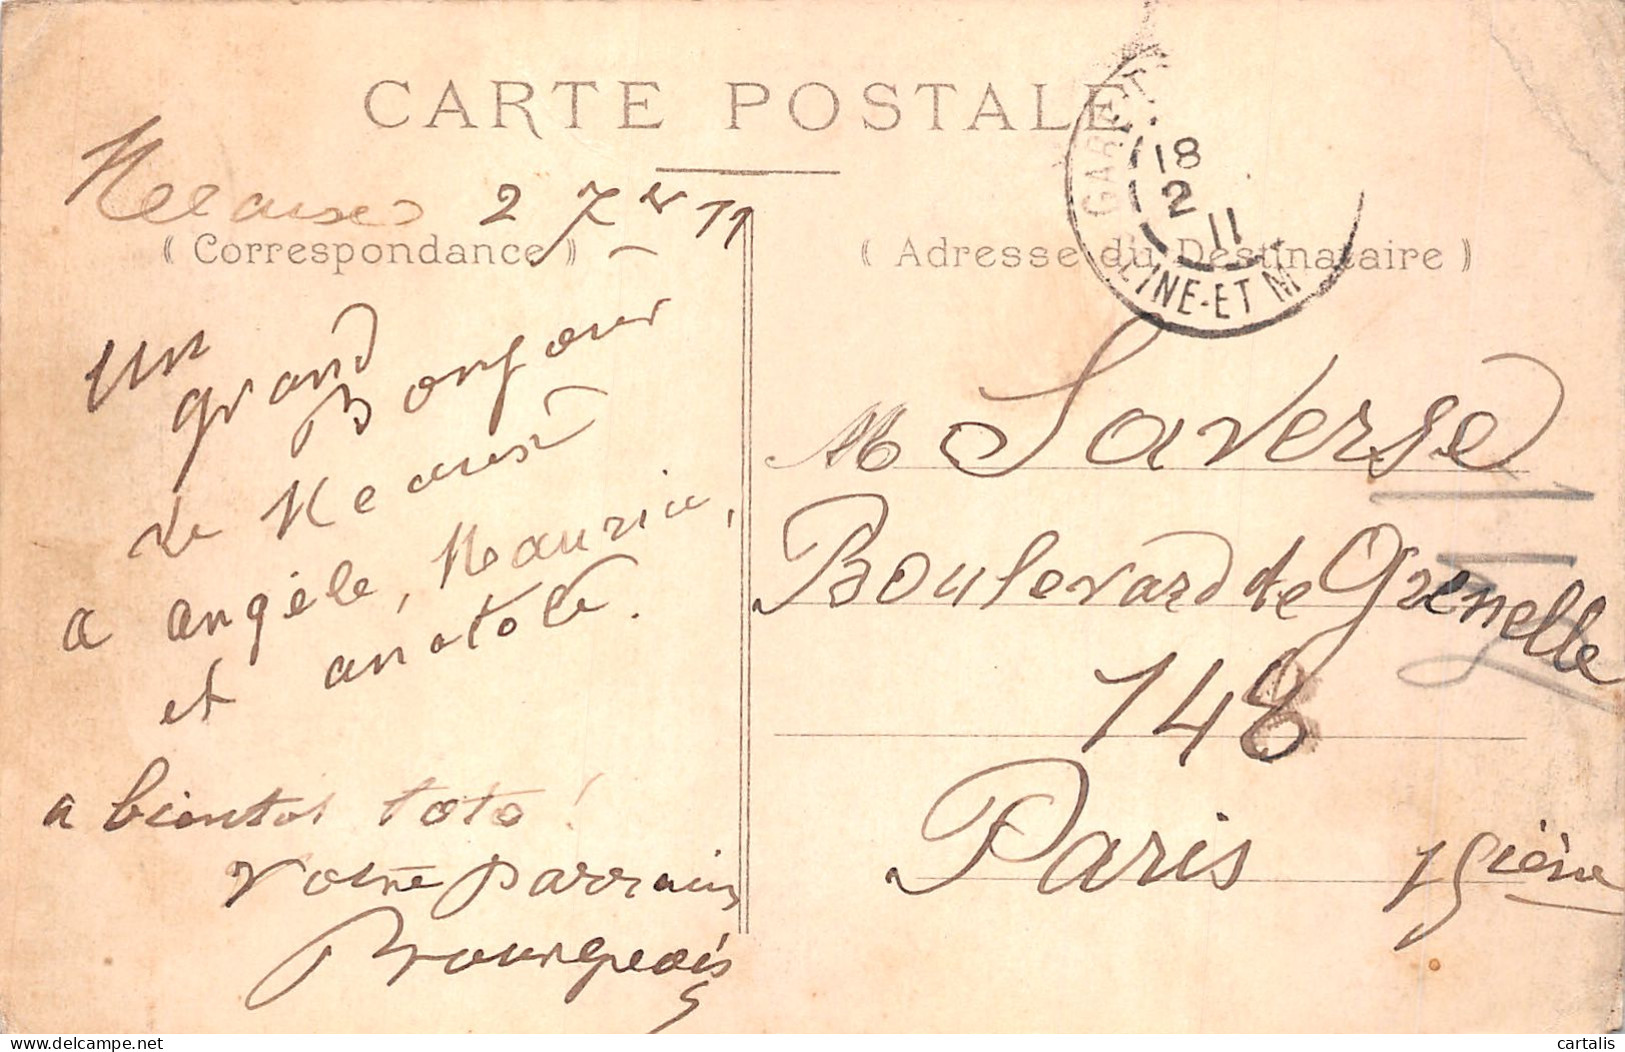 CARTE POSTALE
2 7re 11
( Correspondance )
un
grand
Bonjour
de
a angèle, Maurice,
et anatole.
a bientot toto !
votre parrain
Bourgeois
18
2
11
SEINE-ET M
( Adresse du Destinataire )
M Laverse
Boulevard de Grenelle
148
Paris 15ième
cartalis